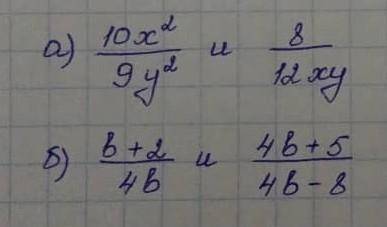 а) 10x²/9y² и 8/12xy
б) (b+2)/4b и (4b+5)/(4b-8)